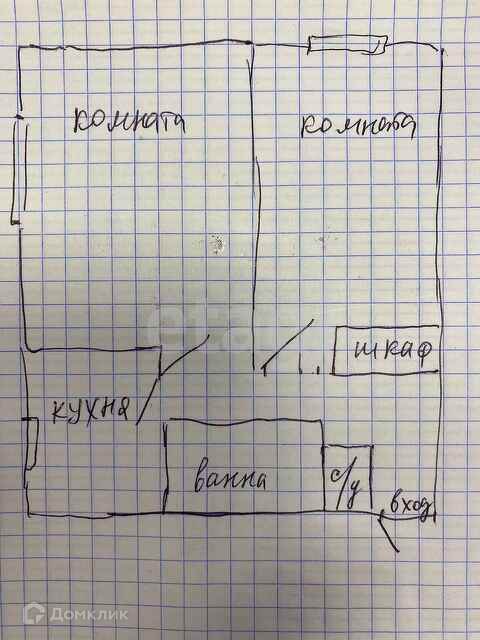 комната
комната
шкаф
кухня
ванна
с/у
вход
Домклик